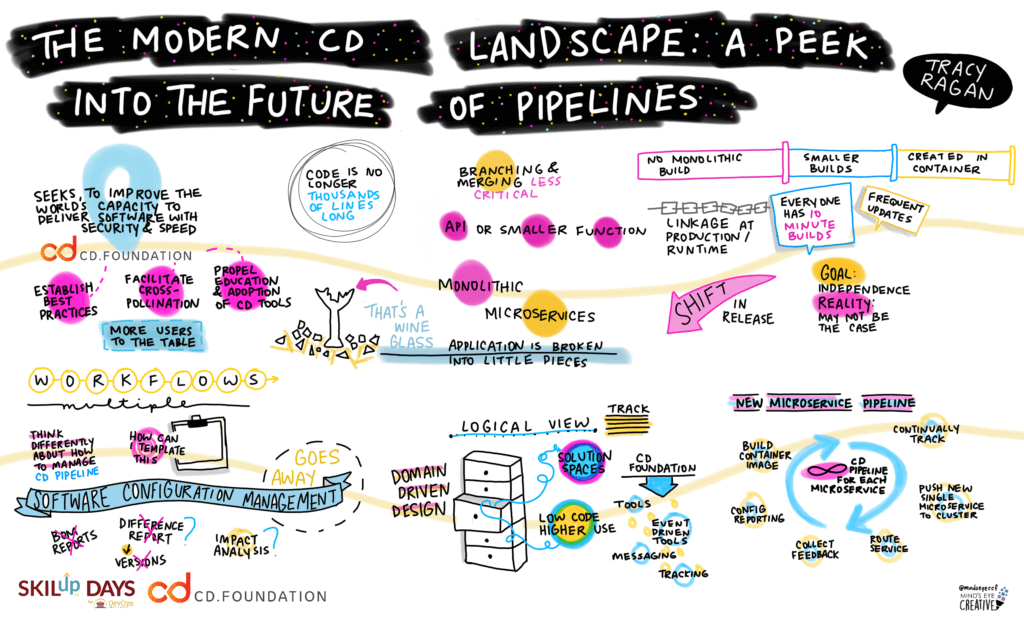 THE MODERN CD LANDSCAPE: A PEEK
INTO THE FUTURE OF PIPELINES
TRACY
RAGAN
SEEKS, TO IMPROVE THE
WORLDS CAPACITY TO
DELIVER SOFTWARE WITH
SECURITY & SPEED
cd CD.FOUNDATION
ESTABLISH
BEST
PRACTICES
FACILITATE
CROSS-
POLLINATION
PROPEL
EDUCATION
& ADOPTION
OF CD TOOLS
MORE USERS
TO THE TABLE
CODE IS NO
LONGER
THOUSANDS
OF LINES
LONG
THAT'S A
WINE
GLASS
BRANCHING &
MERGING LESS
CRITICAL
API OR SMALLER FUNCTION
MONOLITHIC
MICROSERVICES
APPLICATION IS BROKEN
INTO LITTLE PIECES
NO MONOLITHIC
BUILD
SMALLER
BUILDS
CREATED IN
CONTAINER
LINKAGE AT
PRODUCTION/
RUNTIME
EVERYONE
HAS 10
MINUTE
BUILDS
FREQUENT
UPDATES
GOAL:
INDEPENDENCE
REALITY:
MAY NOT BE
THE CASE
SHIFT IN
RELEASE
WORKFLOWS
multiple
THINK
DIFFERENTLY
ABOUT HOW
TO MANAGE
CD PIPELINE
HOW CAN
I TEMPLATE
THIS
GOES
AWAY
SOFTWARE CONFIGURATION MANAGEMENT
BOM
REPORTS
DIFFERENCE
REPORT?
VERSIONS
IMPACT
ANALYSIS?
LOGICAL VIEW
TRACK
DOMAIN
DRIVEN
DESIGN
SOLUTION
SPACES
LOW CODE
HIGHER USE
CD
FOUNDATION
TOOLS
EVENT
DRIVEN
TOOLS
MESSAGING
TRACKING
NEW MICROSERVICE PIPELINE
CONTINUALLY
TRACK
BUILD
CONTAINER
IMAGE
CD
PIPELINE
FOR EACH
MICROSERVICE
PUSH NEW
SINGLE
MICROSERVICE
TO CLUSTER
CONFIG
REPORTING
COLLECT
FEEDBACK
ROUTE
SERVICE
SKILup DAYS
by DevOps
cd CD.FOUNDATION
@mindseyeccf
MIND'S EYE
CREATIVE